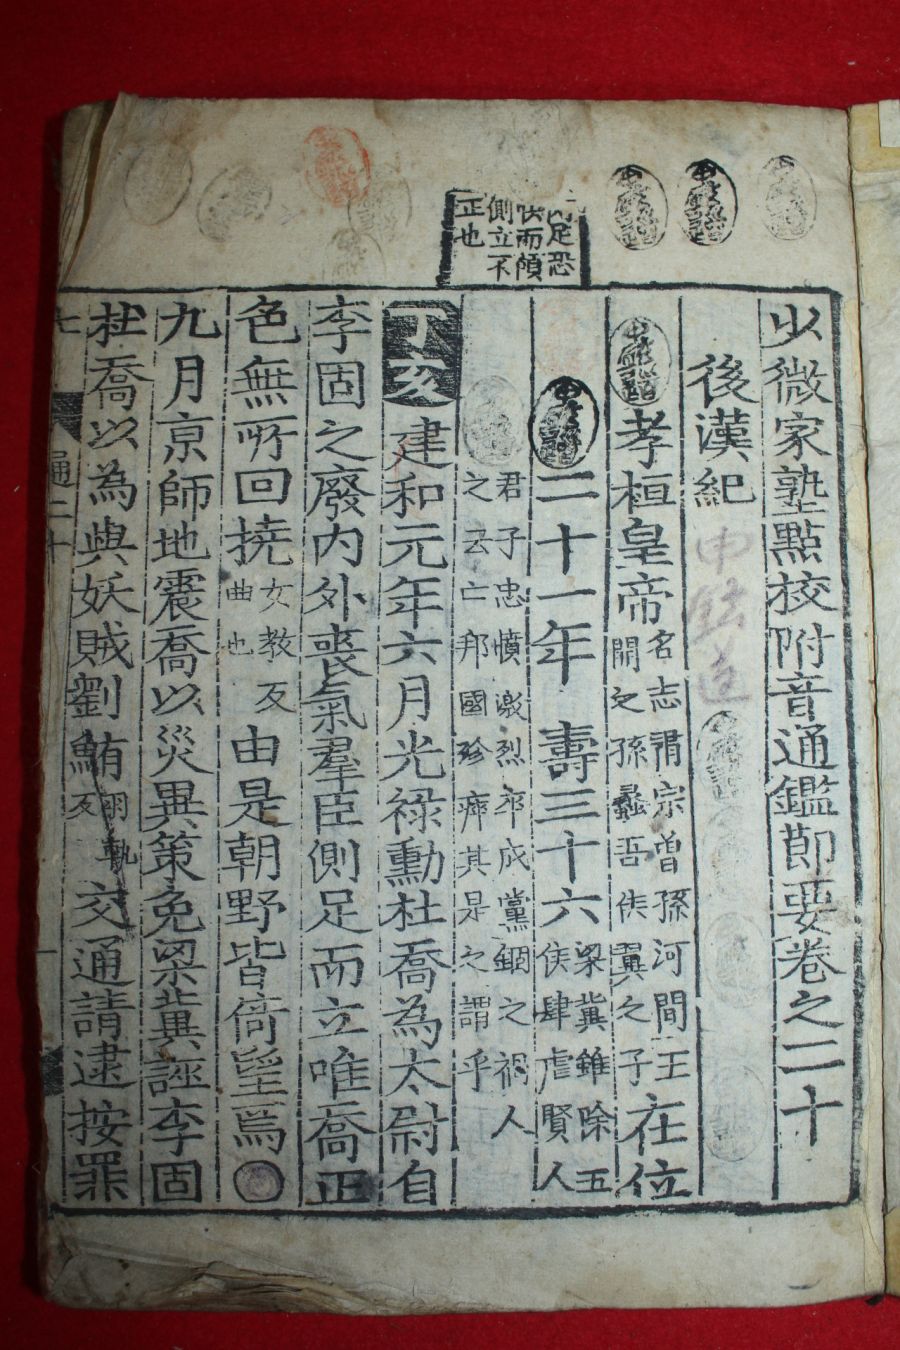 少微家塾點校附音通鑑節要卷之二十
後漢紀
申鉉蓮
孝桓皇帝 名志肅宗曾孫河間王開之孫蠡吾侯翼之子 在位
二十一年 壽三十六 梁冀雖除五侯肆虐賢人
君子忠憤激烈卒成黨錮之禍人之云亡邦國殄瘁其是之謂乎
丁亥 建和元年六月光祿勳杜喬為太尉自
李固之廢內外喪氣羣臣側足而立唯喬正
色無所回撓 女教反曲也 由是朝野皆倚望焉○
九月京師地震喬以災異策免梁冀誣李固
杜喬以為與妖賊劉鮪 反 交通請逮按罪
通二十
足恐
而傾
側立不
正也